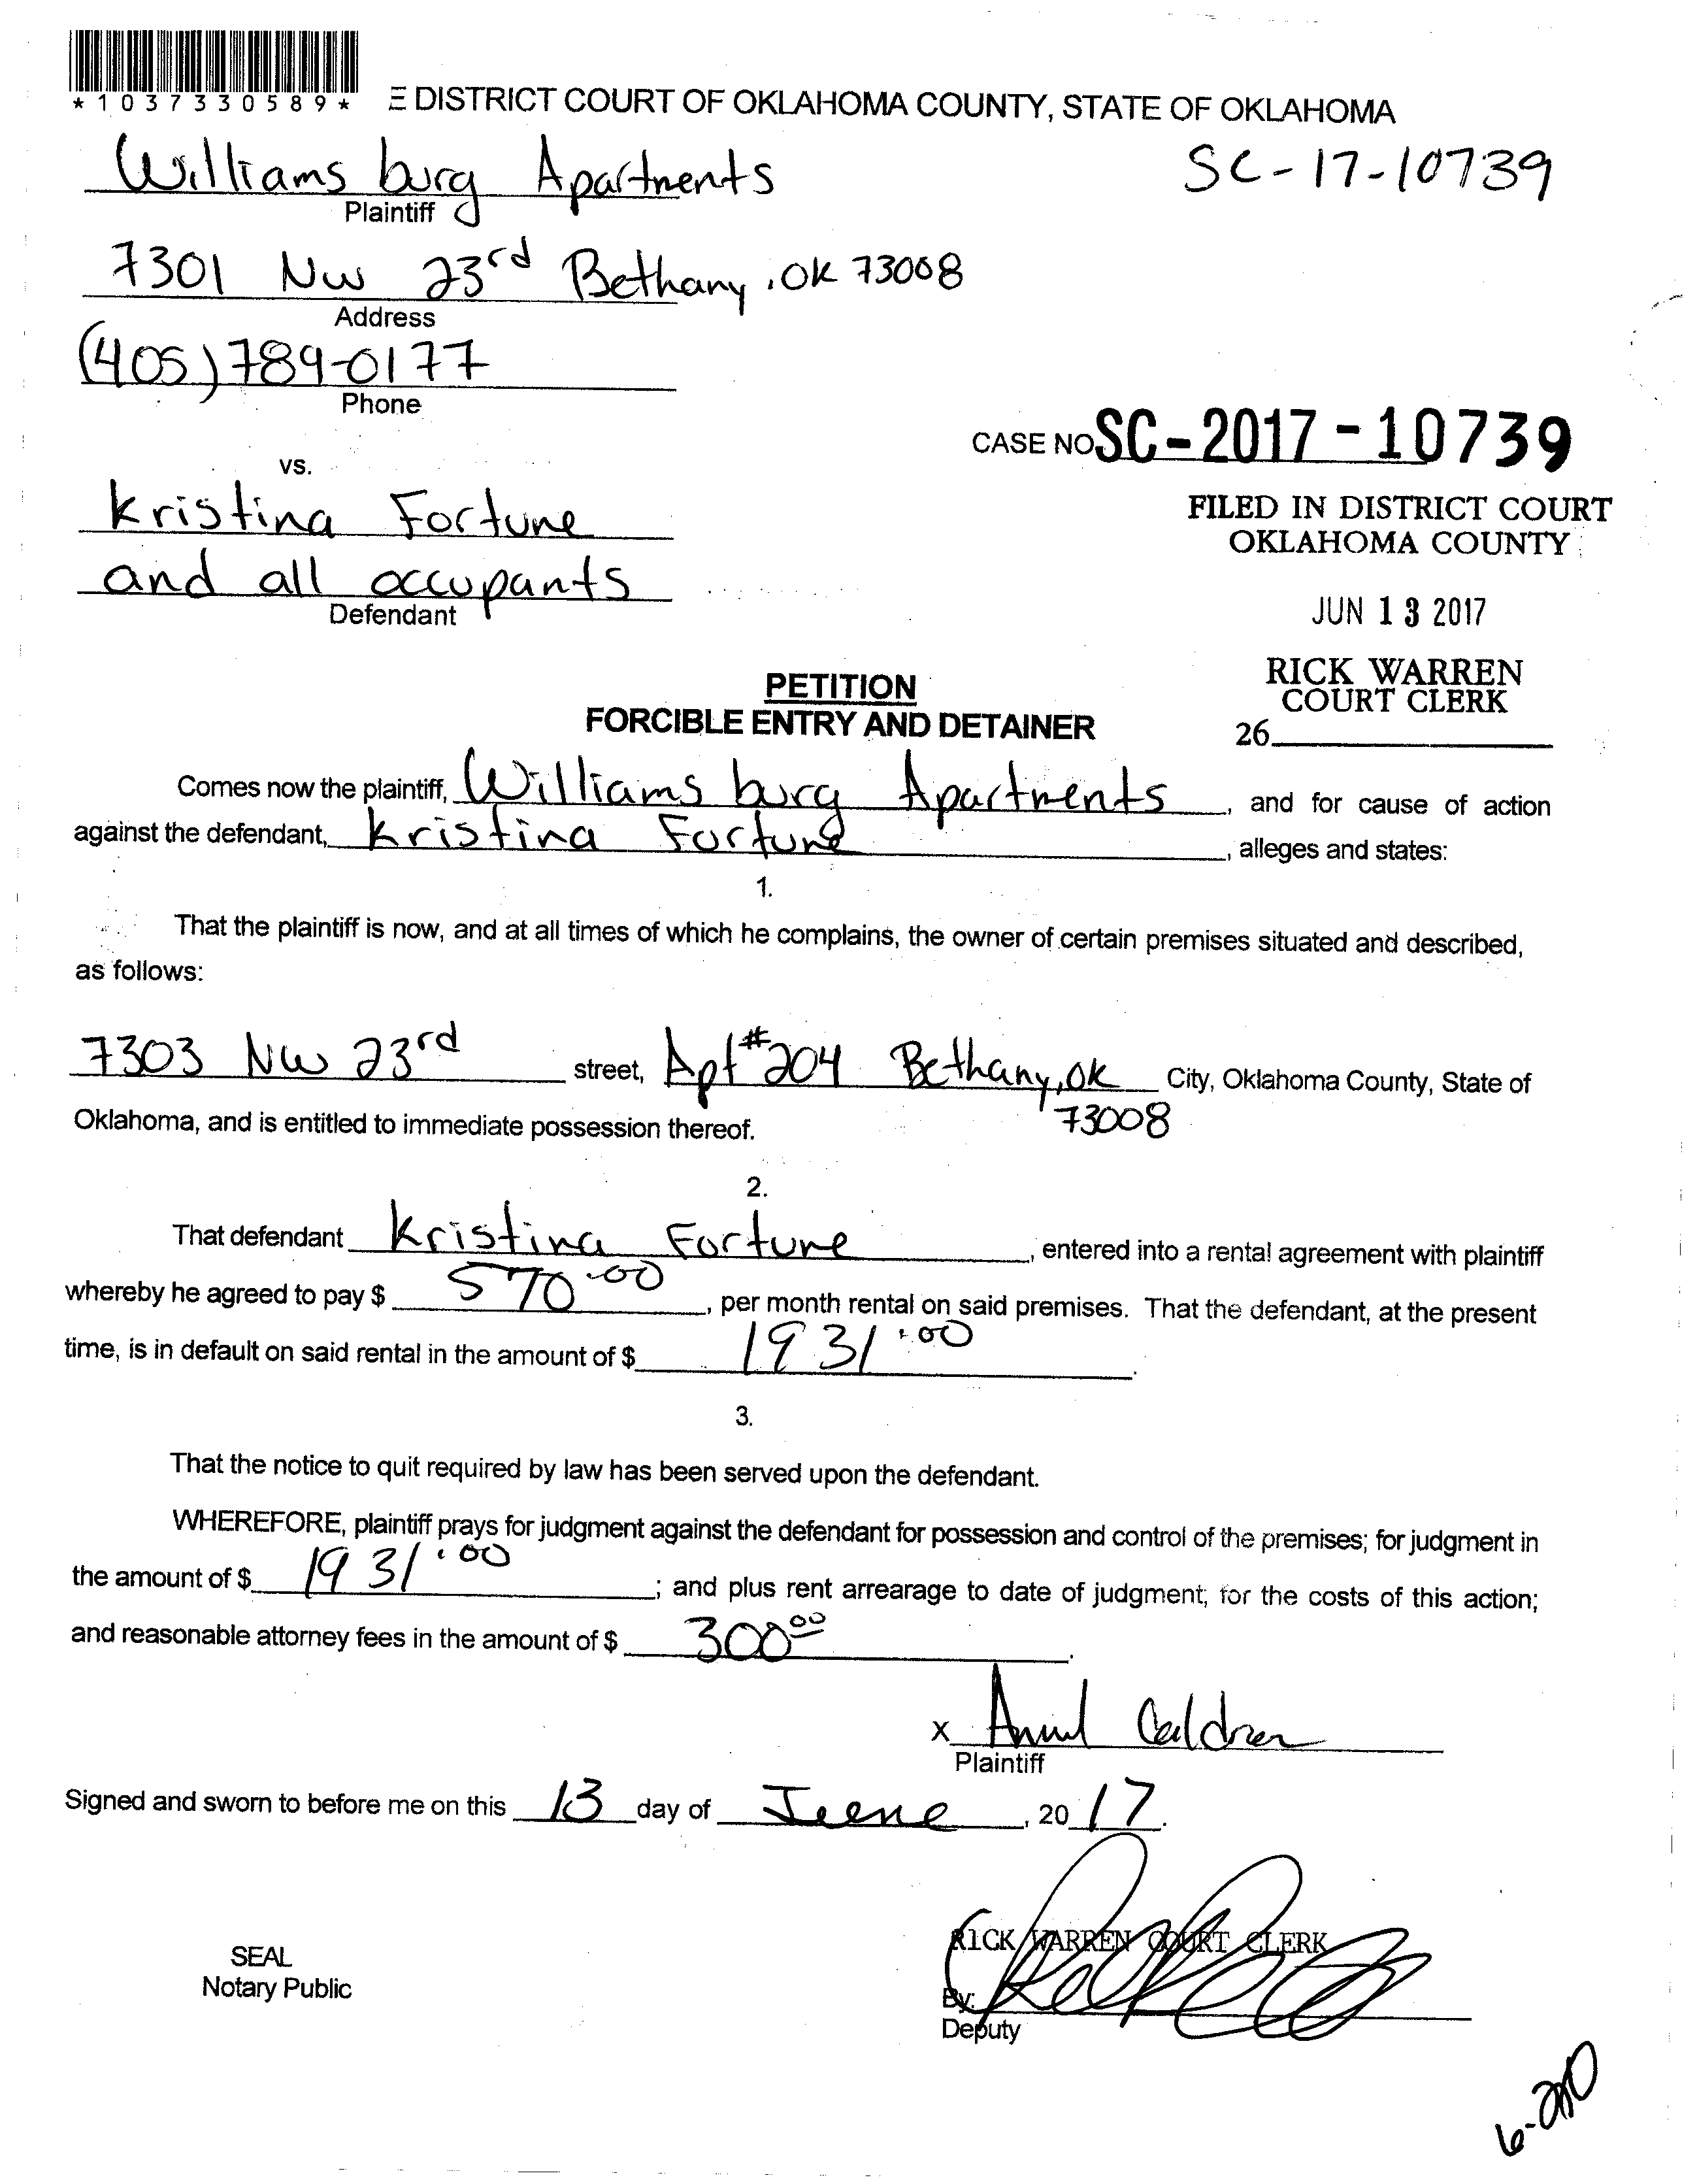 *1037330589*
E DISTRICT COURT OF OKLAHOMA COUNTY, STATE OF OKLAHOMA
Williams burg Apartments SC-17-10739
Plaintiff
7301 NW 23rd Bethany, OK 73008
Address
(405) 789-0177
Phone
CASE NO SC-2017-10739
vs.
Kristina Fortune
FILED IN DISTRICT COURT
OKLAHOMA COUNTY
and all occupants
Defendant
JUN 13 2017
RICK WARREN
COURT CLERK
26
PETITION
FORCIBLE ENTRY AND DETAINER
Comes now the plaintiff, Williams burg Apartments, and for cause of action
against the defendant, Kristina Fortune, alleges and states:
1.
That the plaintiff is now, and at all times of which he complains, the owner of certain premises situated and described,
as follows:
7303 NW 23rd street, Apt #204 Bethany, OK City, Oklahoma County, State of
73008
Oklahoma, and is entitled to immediate possession thereof.
2.
That defendant Kristina Fortune, entered into a rental agreement with plaintiff
whereby he agreed to pay $ 570.00, per month rental on said premises. That the defendant, at the present
time, is in default on said rental in the amount of $ 1931.00.
3.
That the notice to quit required by law has been served upon the defendant.
WHEREFORE, plaintiff prays for judgment against the defendant for possession and control of the premises; for judgment in
the amount of $ 1931.00; and plus rent arrearage to date of judgment; for the costs of this action;
and reasonable attorney fees in the amount of $ 300 00.
X
Plaintiff
Signed and sworn to before me on this 13 day of June, 20 17.
RICK WARREN COURT CLERK
SEAL
Notary Public
By:
Deputy